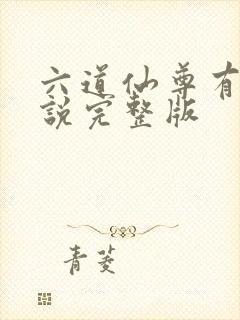 六道仙尊有
說完整版
青菱